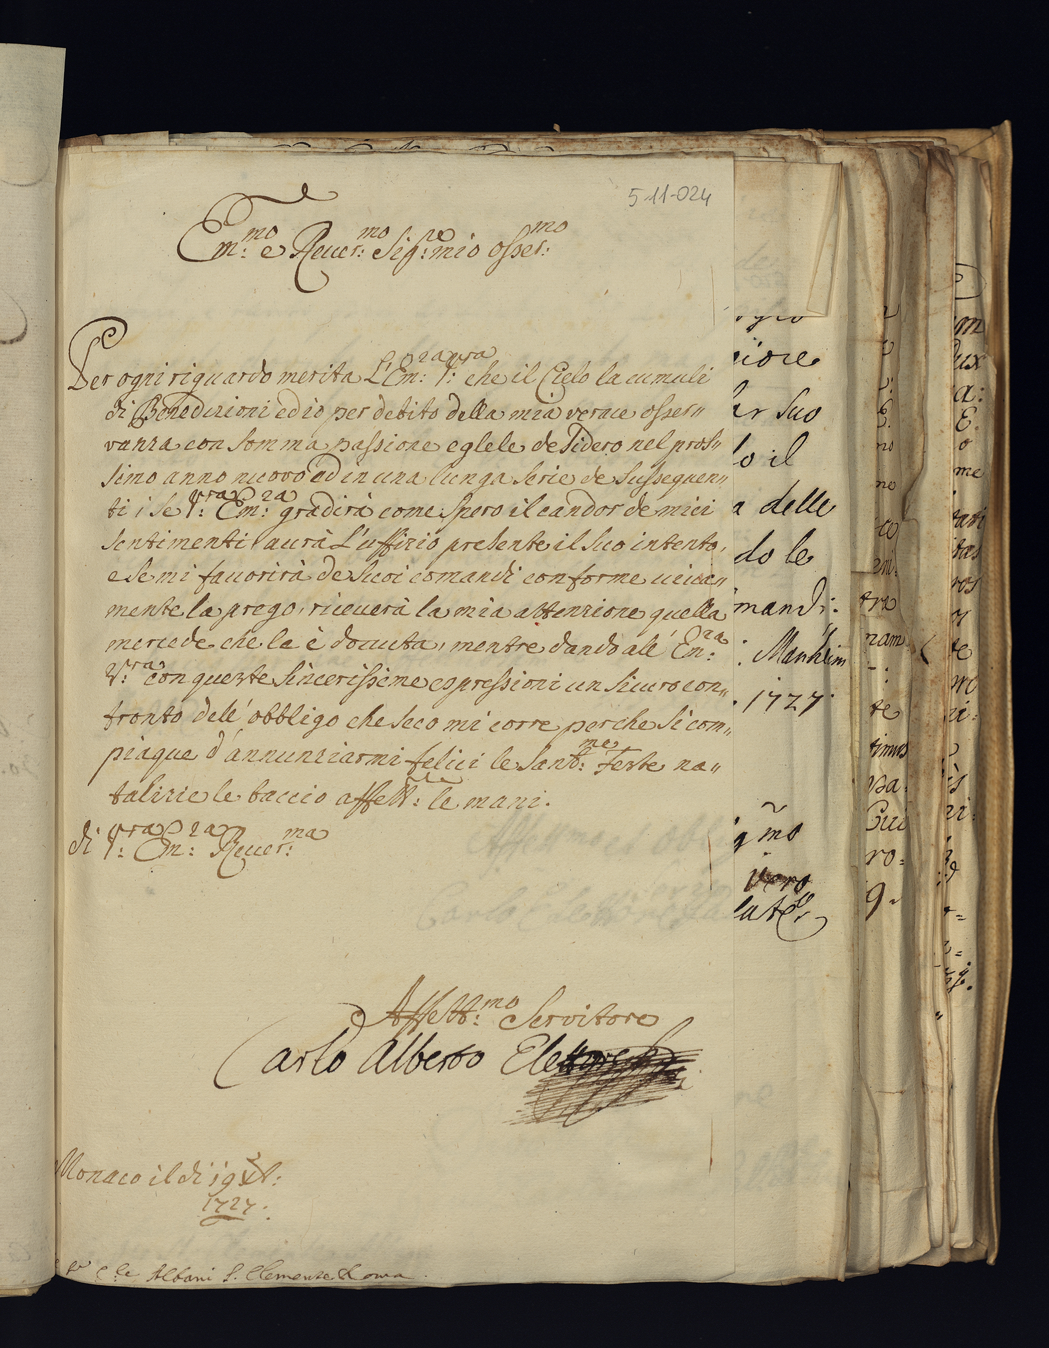 5-11-024
Em:mo e Reuer:mo Sig:re mio osser:mo
Per ogni riguardo merita L'Em:za V:ra che il Cielo la cumuli
di Benedizioni ed io per debito della mia verace osser"
vanza con somma passione eglele desidero nel pros"
simo anno nuovo ed in una lunga serie de susseguen"
ti; se V:ra Em:za gradirà come spero il candor de miei
sentimenti aurà L'uffizio presente il suo intento,
e se mi fauorirà de suoi comandi conforme uiua"
mente la prego, riceuerà la mia attenzione quella
mercede che le è douuta, mentre dando all' Em:za
V:ra con queste sincerissime espressioni un sicuro con"
fronto dell' obbligo che seco mi corre perche si com"
piaque d'annunziarmi felici le Sant:me Feste na"
talizie le baccio affett:te le mani.
di V:ra Em:za Reuer:ma
Affett:mo Servitore
Carlo Alberto Elettore
Monaco il di 19 Xb:
1727.
Albani S. Clemente Roma.
iore
er suo
lo il
a delle
do le
mandi:
: Manheim
. 1727.